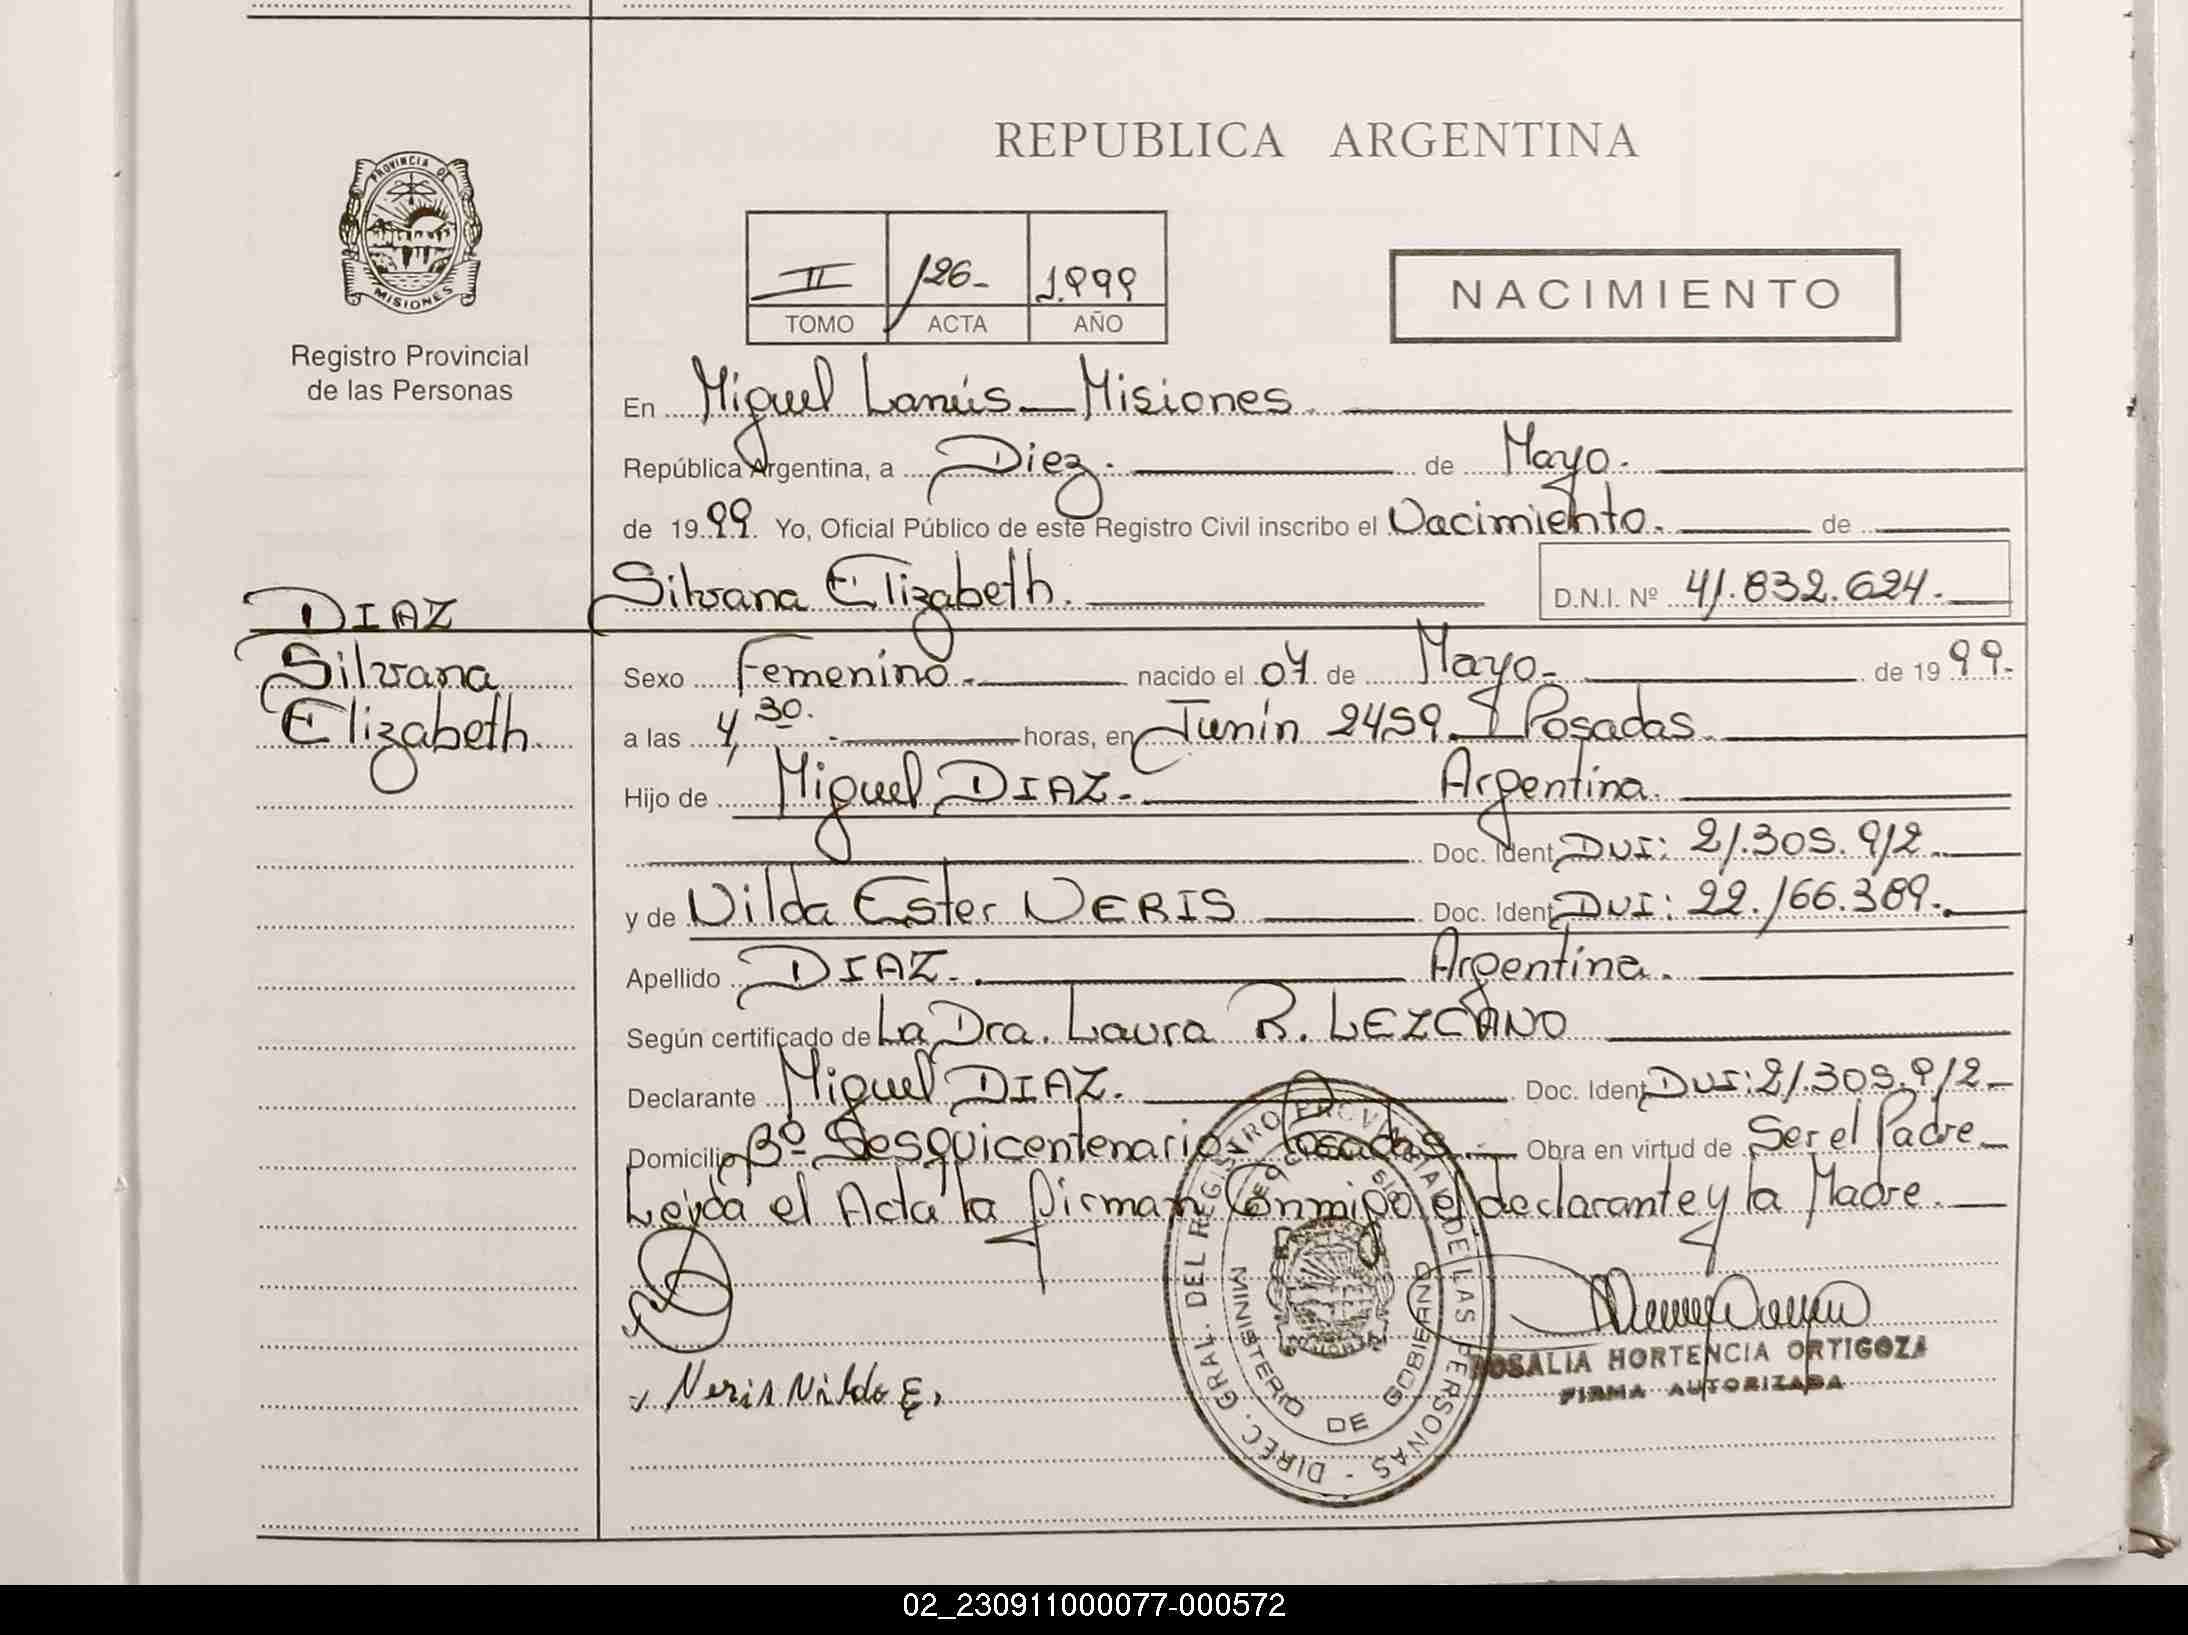 REPUBLICA ARGENTINA
PROVINCIA DE MISIONES
Registro Provincial
de las Personas
II 126- 1.999
TOMO ACTA AÑO
NACIMIENTO
En Miguel Lanús - Misiones.
República Argentina, a Diez. de Mayo.
de 1999. Yo, Oficial Público de este Registro Civil inscribo el Nacimiento. de
DIAZ
Silvana
Elizabeth.
Silvana Elizabeth. D.N.I. Nº 41.832.624.
Sexo Femenino. nacido el 07 de Mayo. de 1999.
a las 4,30. horas, en Junín 2459. Posadas.
Hijo de Miguel DIAZ. Argentina.
Doc. Ident. DNI: 21.305.912.
y de Nilda Ester NERIS Doc. Ident. DNI: 22.166.389.
Apellido DIAZ. Argentina.
Según certificado de La Dra. Laura R. LEZCANO
Declarante Miguel DIAZ. Doc. Ident. DNI: 21.305.912
Domicilio Bº Sesquicentenario. Posadas. Obra en virtud de Ser el Padre
Leída el Acta la firman Conmigo el declarante y la Madre.
Neris Nilda E.
DIREC. GRAL. DEL REGISTRO PROVINCIAL DE LAS PERSONAS -
MINISTERIO DE GOBIERNO
ROSALIA HORTENCIA ORTIGOZA
FIRMA AUTORIZADA
02_230911000077-000572